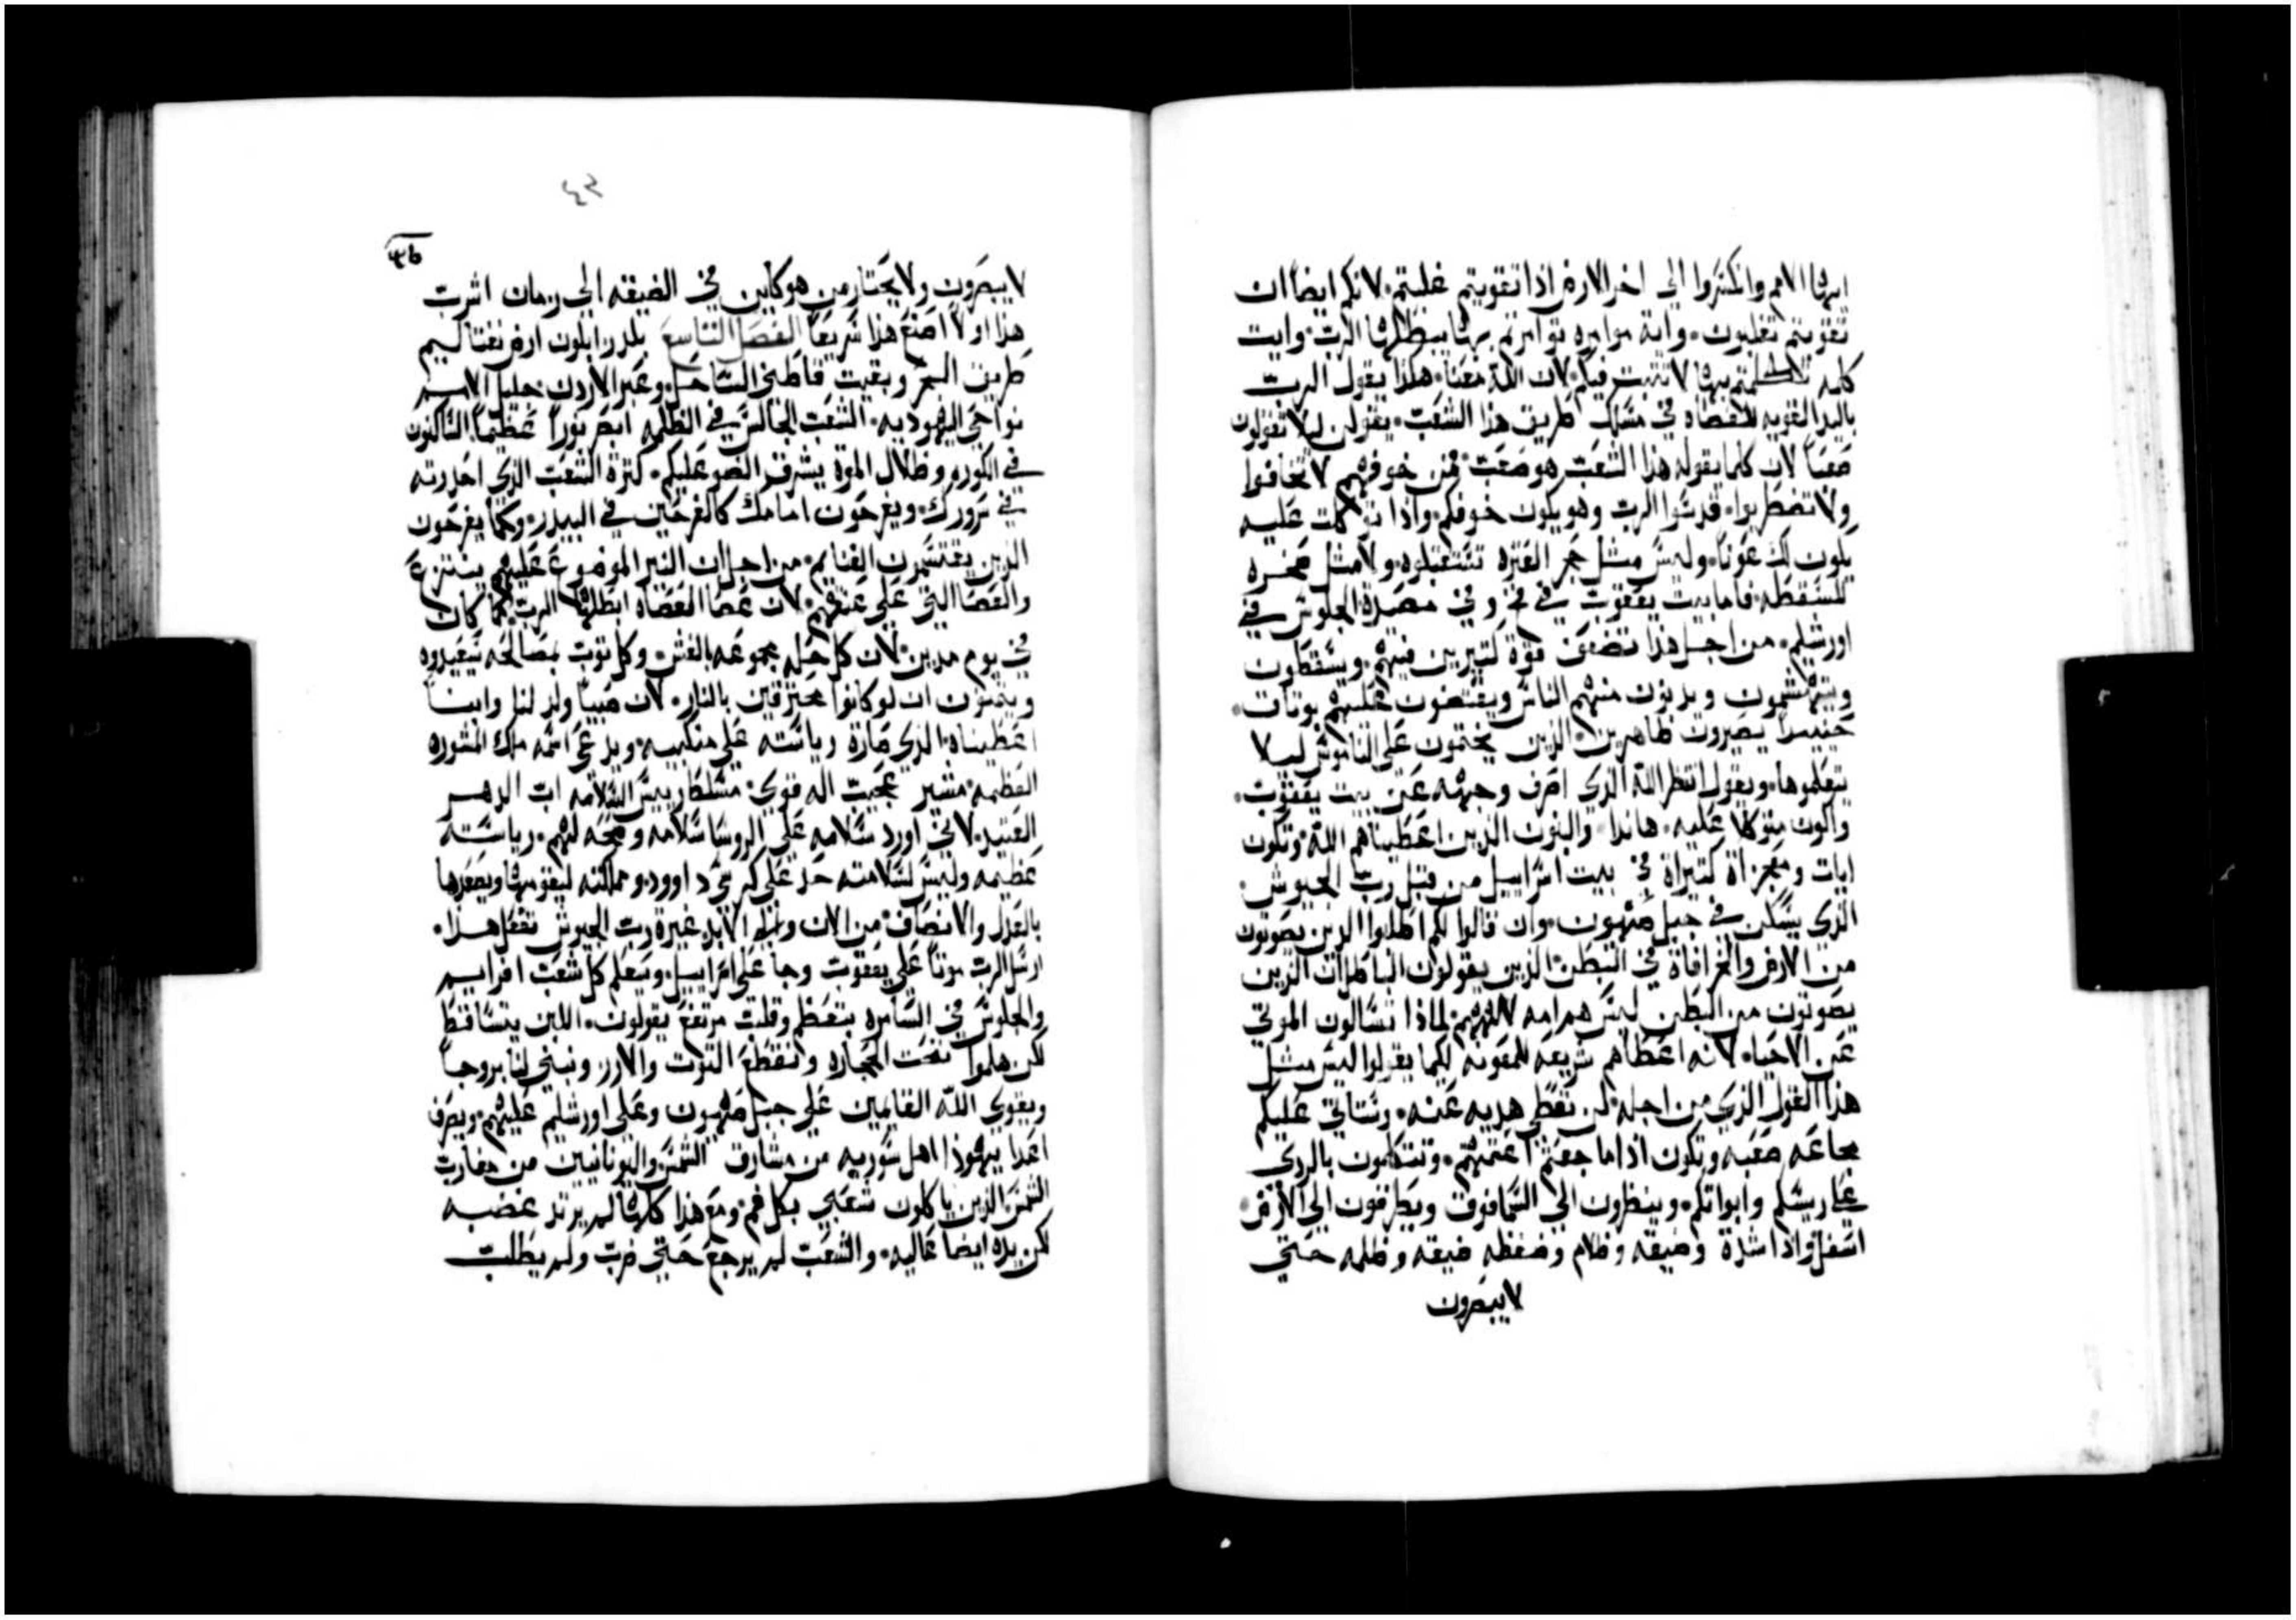 ايها الامم وانكسروا الي اخر الارض اذا تقويتم غلبتم. لانكم ايضا ان
تقويتم تغلبون. واية موامره توامرتم بها يبطلها الرب. وايت
كلمه تكلمتم بها لا تثبت فيكم. لان الله معنا. هكذا يقول الرب
باليد القويه للعصاه في مسلك طريق هذا الشعب. يقولن ليلا تقولون
صعبا لان كلما يقوله هذا الشعب هو صعب فمن خوفهم لا تخافوا
ولا تضطربوا. قدسوا الرب وهو يكون خوفكم. واذا توكلت عليه
يكون لك عونا. وليس مثل حجر العثره تستقبلوه. ولا مثل صخره
للسقطه. فاما بيت يعقوب في فخ وفي مصيدة الجلوس في
اورشليم. من اجل هذا تضعف قوة كتيرين فيهم. ويسقطون
ويتهشمون ويدنون منهم الناس ويقتضون عليهم بوثاث.
حينيذا يصيرون ظاهرين. الذين يختمون علي الناموس ليلا
يتعلموها. ويقول انتظر الله الذي اصرف وجهه عن بيت يعقوب.
واكون متوكلا عليه. هاندا والبنون الذين اعطيناهم الله وتكون
ايات ومعجزاة كتيراة في بيت اسراييل من قبل رب الجيوش.
الذي يسكن في جبل صهيون. وان قالوا لكم اطلبوا الذين يصوتون
من الارض والعرافاة في البطن الذين يقولون الباطلان الذين
يصوتون من البطن ليس هم امه لالههم. لماذا تسالون الموتي
عن الاحيا. لانه اعطاهم شريعه للمعونه لكيما يقولوا ليس مثل
هذا القول الذي من اجله لن تعطي هديه عنه. وستاتي عليكم
مجاعه صعبه وتكون اذا ما جعتم اغتميتم. وتتكلمون بالردي
علي ريسكم وابواتكم. وينظرون الي السما فوق ويطرقون الي الارض
اسفل. واذا شدة وضيقه وظلام وضغطه ضيقه وظلمه حتي
لا يبصرون
٤٢
لا يبصرون ولا يحتار من هو كاين في الضيقه الي زمان اشرب
هذا اولا اصنع هذا سريعا الفصل التاسع بلد زابلون ارض نفتاليم
طريق البحر وبقيت قاطني الساحل وعبر الاردن جليل الامم
نواحي اليهوديه. الشعب الجالس في الظلمه ابصر نورا عظيما الساكنون
في الكوره وظلال الموة يشرق الضو عليكم. كترة الشعب الذي احدرته
في سرورك. ويفرحون امامك كالفرحين في البيدر. وكما يفرحون
الذين يقتسمون الغنايم. من اجل ان النير الموضوع عليهم ينتزع
والعصا التي علي عنقهم. لان عصا العصاه ابطلها الرب كما كان
في يوم مدين. لان كل حله مجموعه بالغش. وكل توب بمصالحه سيعيدوه
ويتمنون ان لو كانوا محترقين بالنار. لان صبيا ولد لنا وابنا
اعطيناه. الذي صارة رياسته علي منكبيه. ويدعي اسمه ملك المشوره
العظيمه. مشير عجيب اله قوي. مسلط ريس السلامه اب الدهر
العتيد. لاني اورد سلامه علي الروسا سلامه وصحه لهم. رياسته
عظيمه وليس لسلامته حد علي كرسي داوود. ومملكته ليقومها ويعضدها
بالعدل والانصاف. من الان والي الابد غيرة رب الجيوش تفعل هذا.
ارسل الرب موتا علي يعقوب وجا علي اسراييل. وسيعلم كل شعب افراييم
والجلوس في السامره بتعظم وقلب مرتفع يقولون. اللبن يتساقط
لكن هلموا نحت الحجاره ونقطع التوت والارز ونبني لنا بروجا
ويقوي الله القايمين علي جبل صهيون وعلي اورشليم عليهم. ويصرف
اعدا يهوذا اهل سوريه من مشارق الشمس واليونانيين من مغارب
الشمس الذين ياكلون شعبي بكل فم. ومع هذا كلها لم يرتد غضبه
لكن يده ايضا عاليه. والشعب لم يرجع حتي ضرب ولم يطلب